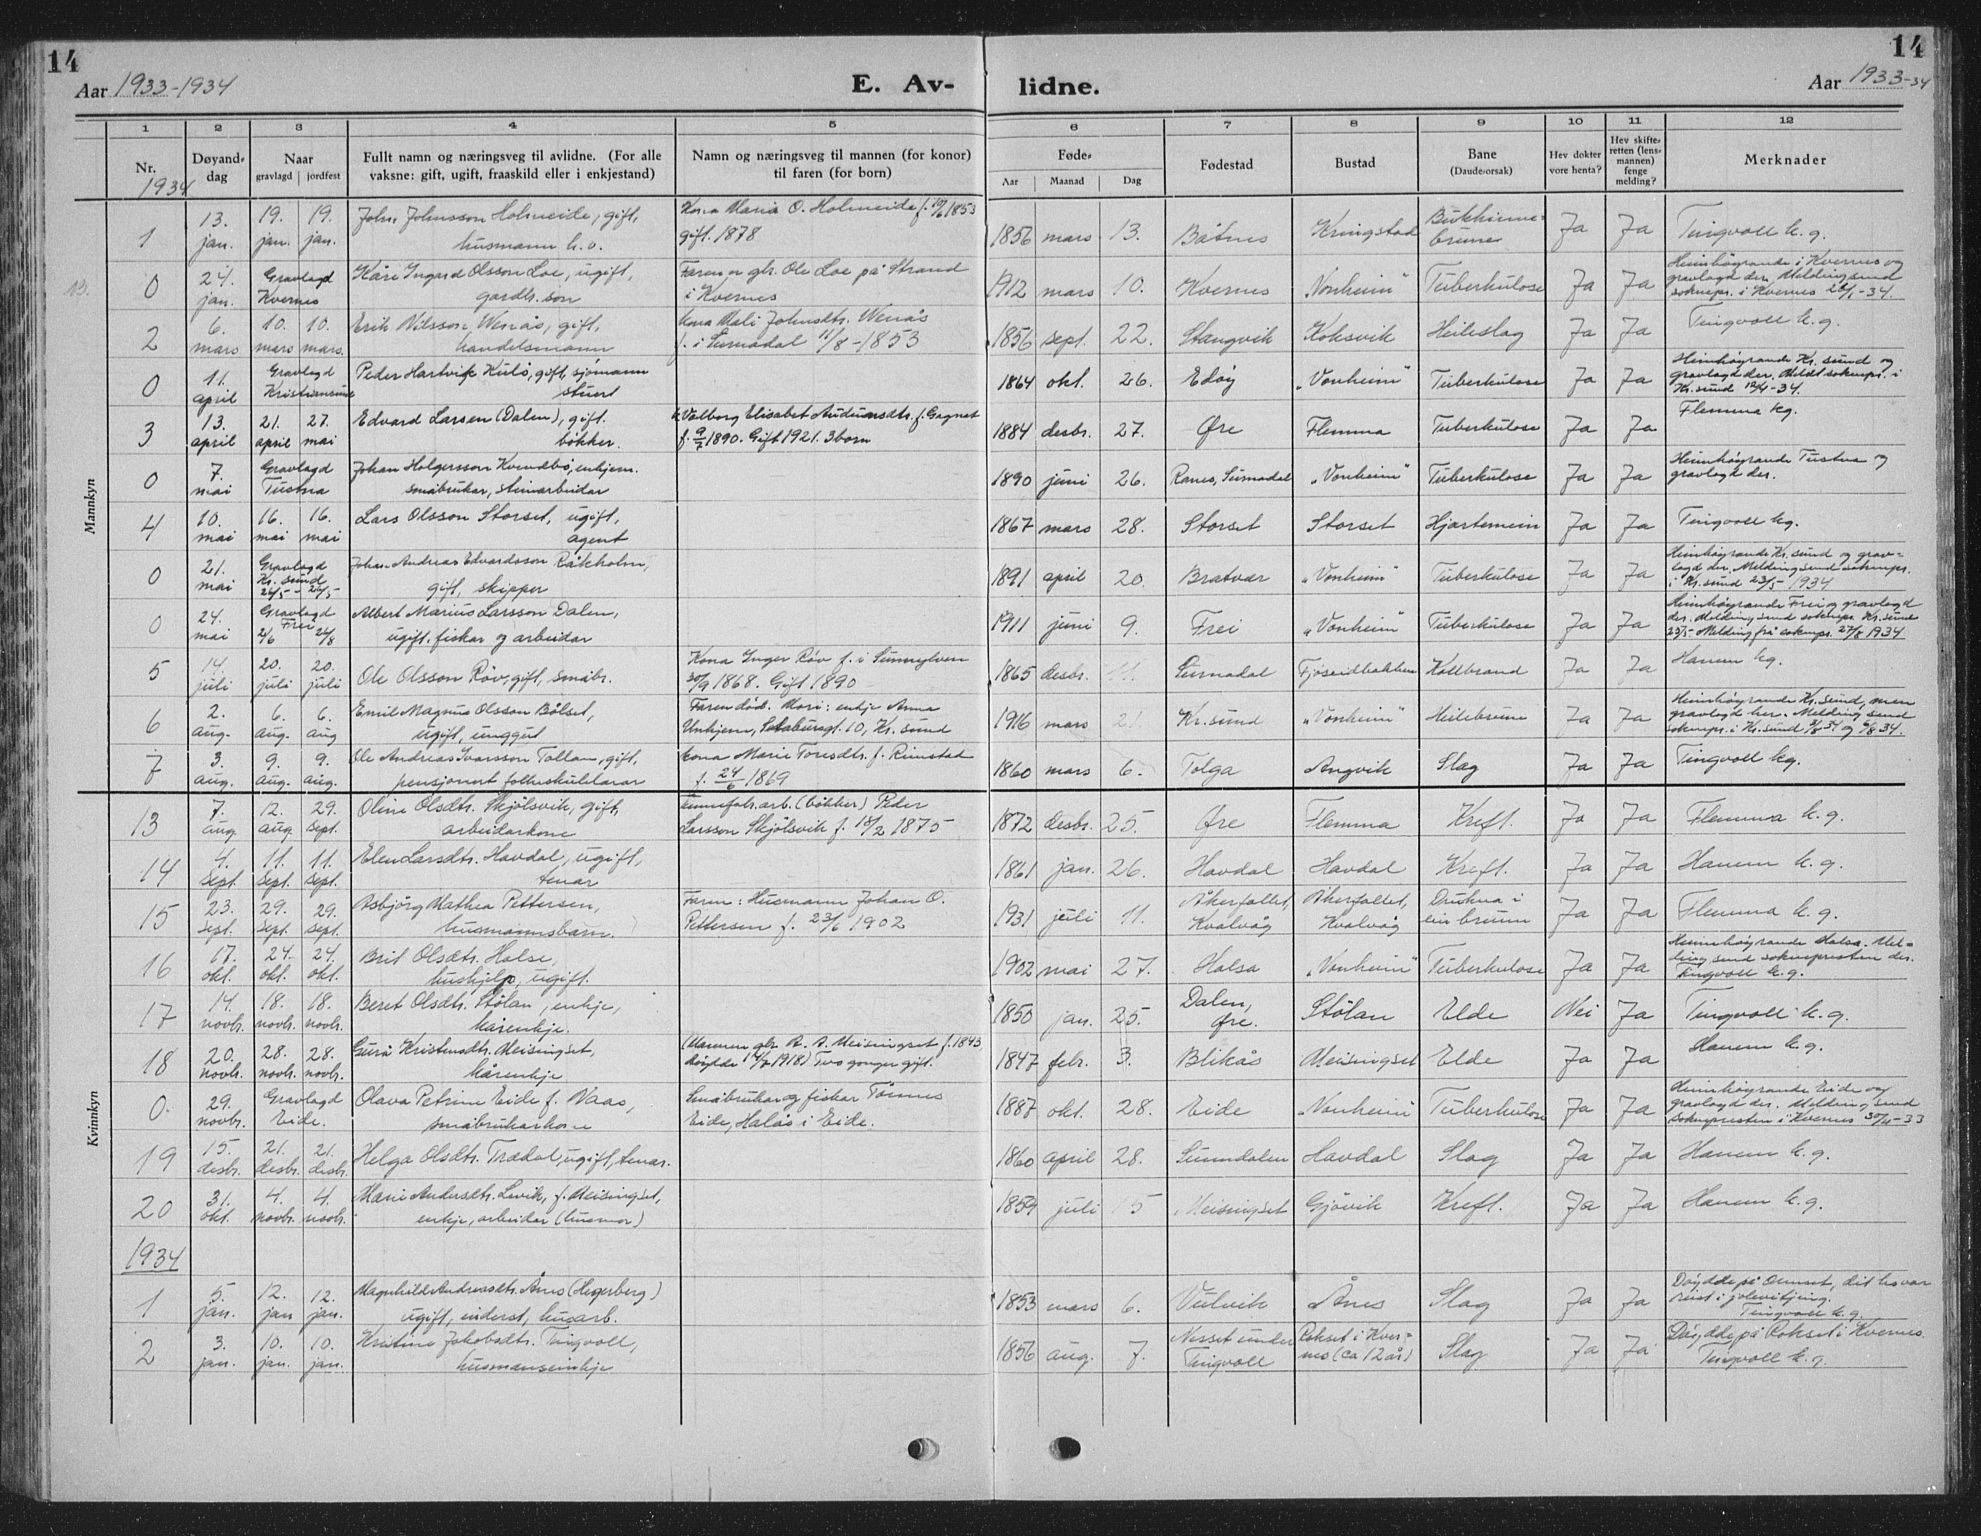 14
14
Aar 1933-1934
E. Av-
lidne.
Aar 1933-34
1 2 3 4 5 6 7 8 9 10 11 12
Nr.
Døyand-
dag
Naar
gravlagd jordfest
Fullt namn og næringsveg til avlidne. (For alle
vaksne: gift, ugift, fraaskild eller i enkjestand)
Namn og næringsveg til mannen (for konor)
til faren (for born)
Føde-
Aar Maanad Dag
Fødestad
Bustad
Bane
(Daude-orsak)
Hev dokter
vore henta?
Hev skifte-
retten (lens-
mannen)
fenge
melding?
Merknader
1934
Mannkyn
1 13. jan. 19. jan. 19. jan. John Johnsson Holmeide, gift,
husmann k.o.
Kona Maria O. Holmeide f. 1853
gift. 1878
1856 mars 13. Båtnes Kringstad Ja Ja Tingvoll k.g.
0 24. jan. Gravlagd Kvernes Kåre Ingard Olsson Loe, ugift,
gardb. son
Faren er gbr. Ole Loe på Strand
i Kvernes
1912 mars 10. Kvernes "Vonheim" Tuberkulose Ja Ja Heimhøyrande i Kvernes og
gravlagd der. Melding send
soknepr. i Kvernes 26/1-34.
2 6. mars 10. mars 10. mars. Erik Nilsson Wenås, gift,
handelsmann
Kona Mali Johnsdtr. Wenås
f. i Surnadal 11/8-1853
1856 sept. 22. Stangvik Koksvik Heileslag Ja Ja Tingvoll k.g.
0 11. april Gravlagd Kristiansund Peder Hartvik Kulø, gift, sjømann
stuert
1864 okt. 26. Edøy "Vonheim" Tuberkulose Ja Ja Heimhøyrande Kr.sund og
gravlagd der. Meldt soknepr. i
Kr.sund 12/4-34.
3 13. april 21. april 27. mai Edvard Larsen (Dalen), gift.
bøkker.
k. Valborg Elisabet Audunsdtr. f. Gagnat
f. 9/7 1890. Gift 1921. 3 born
1884 desbr. 27. Øre Flemma Tuberkulose Ja Ja Flemma kg.
0 7. mai Gravlagd Tustna Johan Holgersson Kvendbø, enkjem.
småbrukar, steinarbeidar
1890 juni 26. Ranes, Surnadal "Vonheim" Tuberkulose Ja Ja Heimhøyrande Tustna og
gravlagd der.
4 10. mai 16. mai 16. mai Lars Olsson Storset, ugift,
agent
1867 mars 28. Storset Storset Hjartemein Ja Ja Tingvoll kg.
0 21. mai Gravlagd Kr. sund 26/5 - 26/5 Johan Andreas Edvardsson Råkholm,
gift, skipper
1891 april 20. Bratvær "Vonheim" Tuberkulose Ja Ja Heimhøyrande Kr. sund og grav-
lagd der. Melding send soknepr.
i Kr. sund 23/5 1934
0 24. mai Gravlagd Frei 2/6 24/8 Albert Marius Larsson Dalen,
ugift, fiskar og arbeidar
1911 juni 9. Frei "Vonheim" Tuberkulose Ja Ja Heimhøyrande Frei og gravlagd
der. Melding send soknepr. Kr. sund
25/5 - Melding frå soknepr. 27/8 1934
5 14. juli 20. juli 20. juli Ole Olsson Røv, gift, småbr.
Kona Inger Røv f. i Sunnylven
30/9 1868. Gift 1890
1865 desbr. 11. Surnadal Fjøseidbakken Kollbrand Ja Ja Hanem kg.
6 2. aug. 6. aug. 6. aug Emil Magnus Olsson Bølset,
ugift, unggut
Faren död. Mori: enkje Anna
Unhjem, 10, Kr. sund
1916 mars "Vonheim" Heilebrune Ja Ja Heimhøyrande Kr. sund, men
gravlagd her. Melding send
soknepr. i Kr. sund 3/8-34 og 6/8 34.
7 3. aug. 9. aug. 9. aug. Ole Andreas Ivarsson Tollan, gift,
pensjonert folkeskulelærar
Kona Marie Toresdtr. f. Rimstad
f. 24/6 1869
1860 mars 6. Tolga Angvik Slag Ja Ja Tingvoll kg.
Kvinnkyn
13 7. aug. 12. aug. 29. sept. Oline Olsdtr. Skjølsvik, gift,
arbeidarkone
(bøkker) Peder
Larsson Skjølsvik f. 18/2 1875
1872 desbr. 25. Øre Flemma Kreft. Ja Ja Flemma k.g.
14 4. sept. 11. sept. 11. sept. Elen Larsdtr. Havdal, ugift,
tenar
1861 jan. 26. Havdal Havdal Kreft. Ja Ja Hanem k.g.
15 23. sept. 29. sept. 29. sept. Asbjørg Mathea Pettersen,
husmannsbarn.
Faren: Husmann Johan O.
Pettersen f. 23/6 1902
1931 juli 11. Åkerfallet,
Kvalvåg
Åkerfallet,
Kvalvåg
Drukna i
ein brunn
Ja Ja Flemma k.g.
16 17. okt. 24. okt. 24. okt. Brit Olsdtr. Halse,
hushjelp, ugift.
1902 mai 27. Halsa "Vonheim" Tuberkulose Ja Ja Heimhøyrande Halsa. Mel-
ding send soknepresten der.
Tingvoll k.g.
17 14. novbr. 18. novbr. 18. novbr. Beret Olsdtr. Stølan, enkje,
kårenkje.
1850 jan. 25. Dalen,
Øre.
Stølan Elde Nei Ja Tingvoll k.g.
18 20. novbr. 28. novbr. 28. novbr. Guri Kristensdtr. Meisingset,
kårenkje
(Mannen gbr. A. A. Meisingset f. 1843
døydde 1918) Two gonger gift.
1847 febr. 3. Blikås Meisingset Elde Ja Ja Hanem k.g.
0. 29. novbr. Gravlagd Eide. Olava Petrine Eide f. Vaas,
småbrukarkone
Småbrukar og fiskar Tørmus
Eide, Halås i Eide.
1887 okt. 28. Eide "Vonheim" Tuberkulose Ja Ja Heimhøyrande Eide og
gravlagd der. Melding send
soknepresten i Kvernes 30/11-33
19 15. desbr. 21. desbr. 21. desbr. Helga Olsdtr. Trædal, ugift, tenar.
1860 april 28. Sunndalen Havdal Slag Ja Ja Hanem k.g.
20 31. okt. 4. novbr. 4. novbr. Marie Andersdtr. Levik, f. Meisingset,
enkje, arbeidar (husmor)
1859 juli 5 Meisingset Gjøvik Kreft. Ja Ja Hanem k.g.
1934
1 5. jan. 12. jan 12. jan. Magnhild Andreasdtr. Ånes (Hegerberg)
ugift, inderst, husarb.
1853 mars 6. Vulvik Ånes Slag Ja Ja Døydde på dit ho var
reist i jolevitjing.
Tingvoll k.g.
2 3. jan. 10. jan. 10. jan. Kristine Jakobsdtr. Tingvoll,
husmannsenkje
1856 aug. 7. Nesset under
Tingvoll
Rokset i Kver-
nes (ca 12 år)
Slag Ja Ja Døydde på Rokset i Kvernes.
Tingvoll k.g.